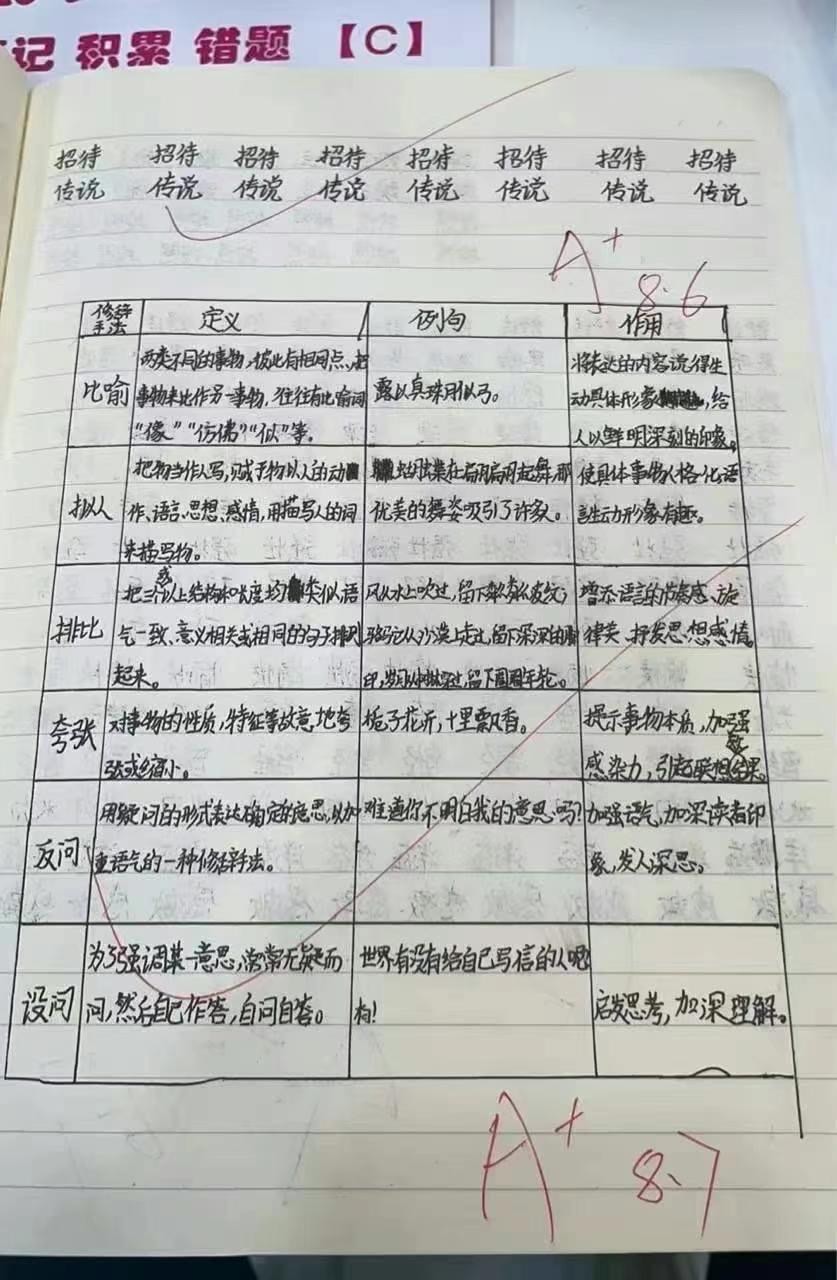 记 积累 错题 【C】
招待 招待 招待 招待 招待 招待 招待 招待
传说 传说 传说 传说 传说 传说 传说 传说
A+ 8.6
修辞手法 定义 例句 作用
比喻
两类不同的事物,彼此有相同点,把
事物来比作另一事物,往往有比喻词
“像”“仿佛”“似”等。
露似真珠月似弓。
将表达的内容说得生
动具体形象,给
人以鲜明深刻的印象。
拟人
把物当作人写,赋于物以人的动
作、语言、思想、感情,用描写人的词
来描写物。
在翩翩起舞,那
优美的舞姿吸引了许多人。
使具体事物人格化语
言生动形象有趣。
排比
把三个或以上结构和长度均类似、语
气一致、意义相关或相同的句子排列
起来。
风从水上吹过,留下粼粼波纹;
骆驼从沙漠上走过,留下深深的
印,留下圆圆年轮。
增添语言的节奏感、旋
律美、抒发思想感情。
夸张
对事物的性质,特征等故意地夸
张或缩小。
栀子花开,十里飘香。
提示事物本质,加强
感染力,引起联想效果。
反问
用疑问的形式表达确定的意思,以加
重语气的一种修辞手法。
难道你不明白我的意思吗?
加强语气,加深读者印
象,发人深思。
设问
为了强调某一意思,常常无疑而
问,然后自己作答,自问自答。
世界有没有给自己写信的人呢
有!
启发思考,加深理解。
A+ 8.7